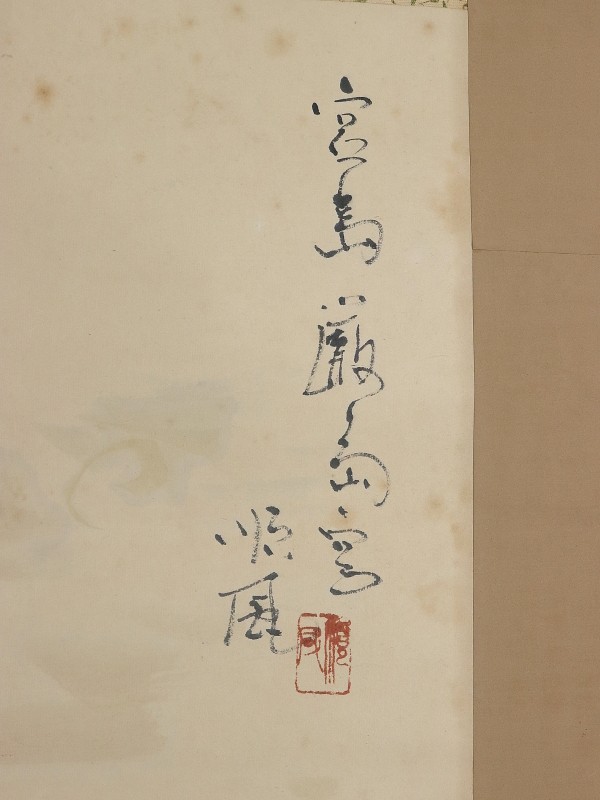 宮島厳島写
順風